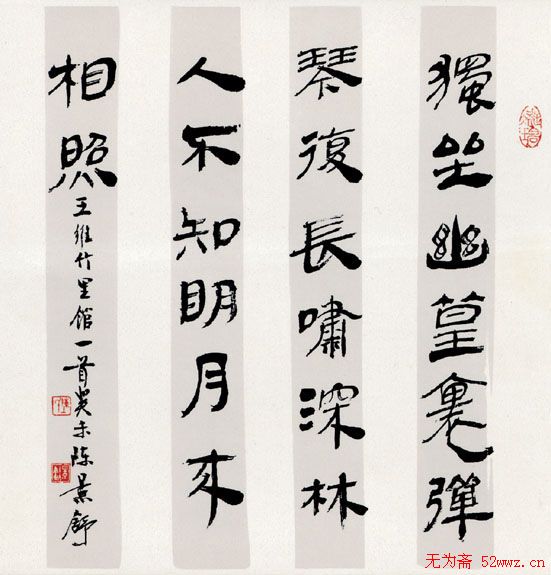 獨坐幽篁裏彈
琴復長嘯深林
人不知明月來
相照
王維竹里館一首癸未陈景舒
无为斋 52wwz.cn